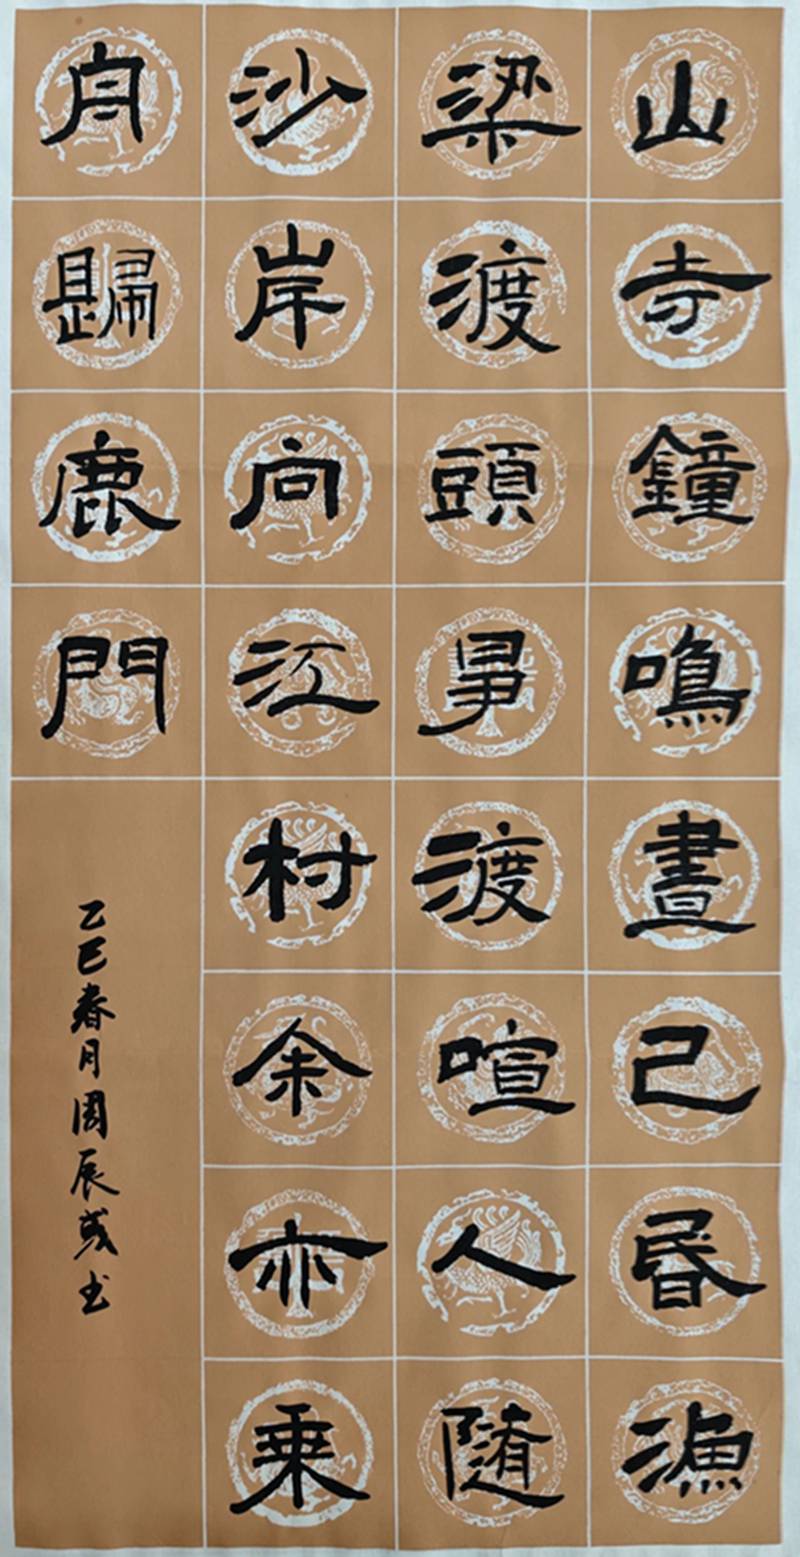 山寺鐘鳴晝已昏漁
梁渡頭爭渡喧人随
沙岸向江村余亦乘
舟歸鹿門
乙巳春月周辰书